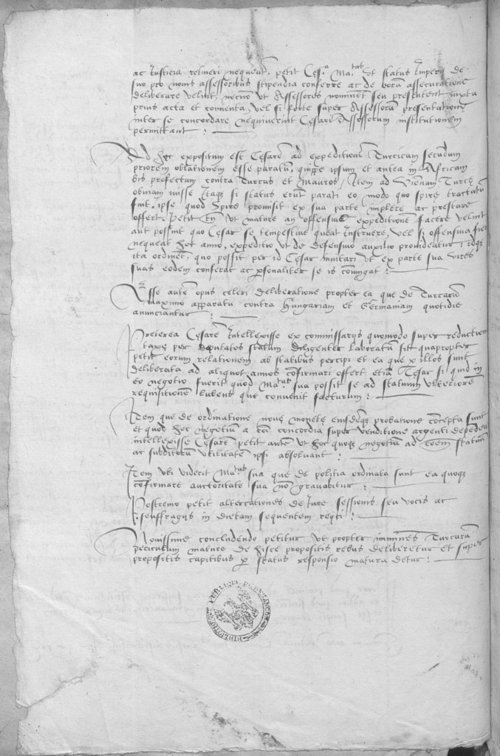 ac Justicia retineri nequeat petit Ces. Ma.tas Vt status Imperij de
suo pro nouis assessoribus stipendia conferre ac de horum assecuratione
deliberare velint necnon vt Assessores nominent seu presentent iuxta
prius acta et conuenta Vel si forte super Assessorum presentatione
inter se concordare nequiuerint Cesarem Assessorum institutionem
permittant :
Ad hoc expositum est Cesarem ad expeditionem Turcicam secundum
priorem oblationem esse paratum quippe ipsum et antea in Africam
profectum contra Turcas et Mauros Item ad Viennam Turce
obuiam iuisse Itaque si status erunt parati eo modo quo Spire tractatum
fuit, ipse quod Spire promisit ex sua parte implere ac prestare
offert, Petit vt mature an offensiuam expeditionem facere velint
aut possint quo Cesar se tempestiue queat instruere, Vel si offensiua fieri
nequeat hoc anno, expeditio vt de defensiuo auxilio prouideatur Idque
ita ordinet, quo possit per id Cesar iuuari vt ex parte sua vires
suas eodem conferat ac personaliter se iis coniungat :
Esse autem opus celeri deliberatione propter ea que de Turcarum
maximo apparatu contra Hungariam et Germaniam quotidie
annunciantur :
Preterea Cesarem Intellexisse ex commissarijs quomodo super reductione
taxe per deputatos statuum diligenter laboratum sit quapropter
petit eorum relationem ab statibus percipi et ea que ex illos sunt
deliberata ad aliquot annos confirmari offert etiam Cesar si quid in
eo negotio fuerit quod Ma.tas sua possit se ad statuum vlteriorem
requisitionem lubens que conuenit facturum :
Item que de ordinatione noue monete eiusdemque probatione concepta sunt
et quod hoc negotium a concordia super venditione argenti dependeat
intellexisse Cesarem petit autem vt hoc quoque negotium ad comunem statuum
ac subditorum vtilitatem ipsi absoluant :
Item vbi viderit Ma.tas sua que de politia ordinata sunt ea quoque
confirmare auctoritate sua non grauabitur :
Postremo petit altercationes de Jure sessionis seu vocis ac
suffragijs in dietam sequentem reijci :
Nouissime concludendo petitur vt propter imminens Turcarum
periculum mature de hisce propositis rebus deliberetur et super
propositis capitibus per status responsio matura detur :